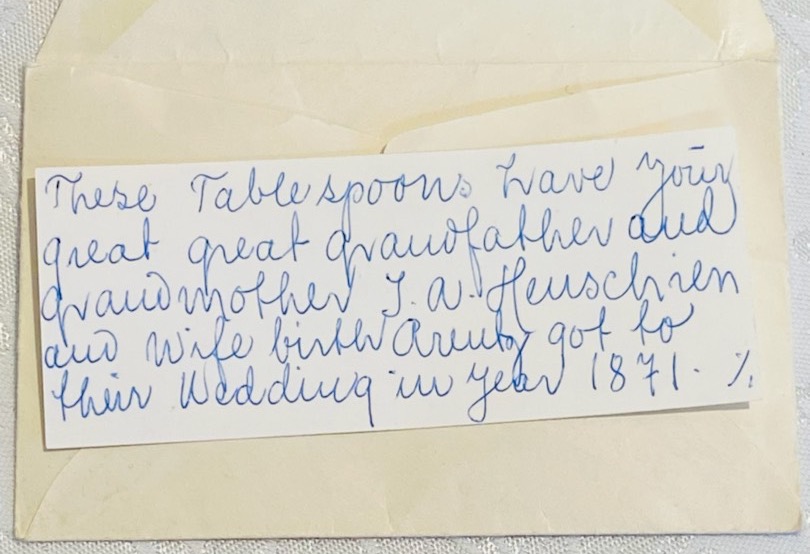 These Tablespoons have your
great great grandfather and
grandmother J. A. Henschien
and wife birth Arentz got to
their Wedding in year 1871. ./.